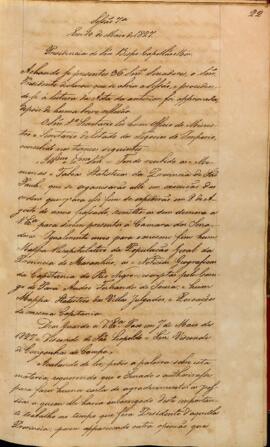 22
Sessão 7ª
Em 10 de Maio de 1827.
Presidencia do Snr. Bispo Capellão Mor.
Achando se presentes 26 Snrs. Senadores, o Snr.
Presidente declarou que se abria a Sessão, e proceden-
do se á leitura da Acta da anterior foi approvada
depois de huma breve
O Snr. 1º Secretario leu hum Officio do Ministro
e Secretario de Estado dos Negocios do Imperio,
concebido nos termos seguintes
Illmo. e Exmo. Snr. Tendo recebido as Me-
morias e Taboa Statistica da Provincia de São
Paulo, que se organisarão em execução das
ordens que para esse fim se expedirão em 8 de A-
gosto do anno passado, remetto as sem demora a
V. Exa. para serem presentes á Camara dos Sena-
dores. Igualmente envio para o mesmo fim hum
Mappa da População geral da
Provincia do Maranhão, e as Noticias Geograficas
da Capitania do Rio Negro, escriptas pelo Cone-
go de Pará André Fernandes de Sousa, e hum
Mappa Statistico das Villas, Julgados, e Povoações
da mesma Capitania.
Deos Guarde a V. Exa. Paço em 7 de Maio de
1827. Visconde de São Leopoldo. Snr. Visconde
de Congonhas do Campo.
de ler, pedio a palavra sobre esta
materia, e requereo que o Senado o authorisasse
para fazer huma carta de agradecimento
a quem elle havia encarregado deste importan-
te trabalho no tempo que foi Presidente d'aquella
Provincia, para opinião que